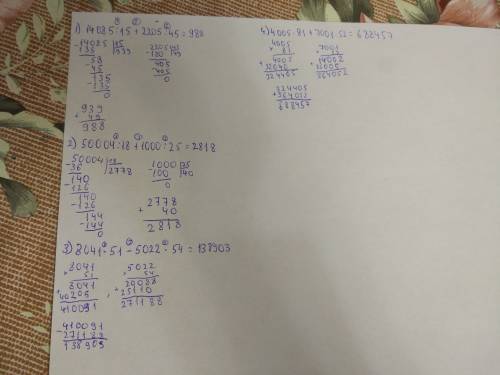 1) 14085:15 + 2205:45 = 988
14085 | 15
135 | 939
58
45
135
135
0
2205 | 45
180 | 49
405
405
0
939
+ 49
988
2) 50004:18 + 1000:25 = 2818
50004 | 18
36 | 2778
140
126
140
126
144
144
0
1000 | 25
100 | 40
0
2778
+ 40
2818
3) 8041·51 - 5022·54 = 138903
8041
× 51
8041
+ 40205
410091
5022
× 54
20088
+ 25110
271188
- 410091
271188
138903
4) 4005·81 + 7001·52 = 688457
4005
× 81
4005
+ 32040
324405
7001
× 52
14002
+ 35005
364052
324405
+ 364052
688457